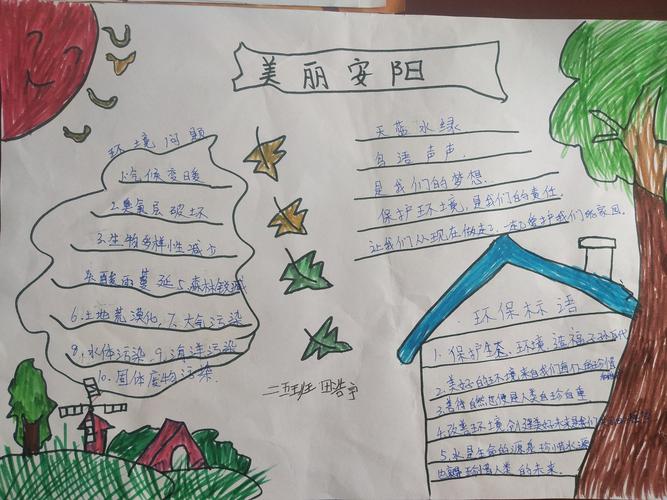 美丽安阳
环境问题
1.气候变暖
2.臭氧层破坏
3.生物多样性减少
4.酸雨蔓延5.森林锐减
6.土地荒漠化,7.大气污染
8.水体污染,9.海洋污染
10.固体废物污染.
天蓝水绿
鸟语声声
是我们的梦想.
保护环境,是我们的责任.
让我们从现在做起,一起爱护我们的家园.
二五班 田浩宇
环保标语
1.保护生态环境,造福子孙后代
2.美好的环境来自我们每个人的珍惜
3.善待自然也便是人类自珍自重
4.改善环境,创建美好未来是我们
5.水是生命的源泉 珍惜水源
也就是珍惜人类的未来.